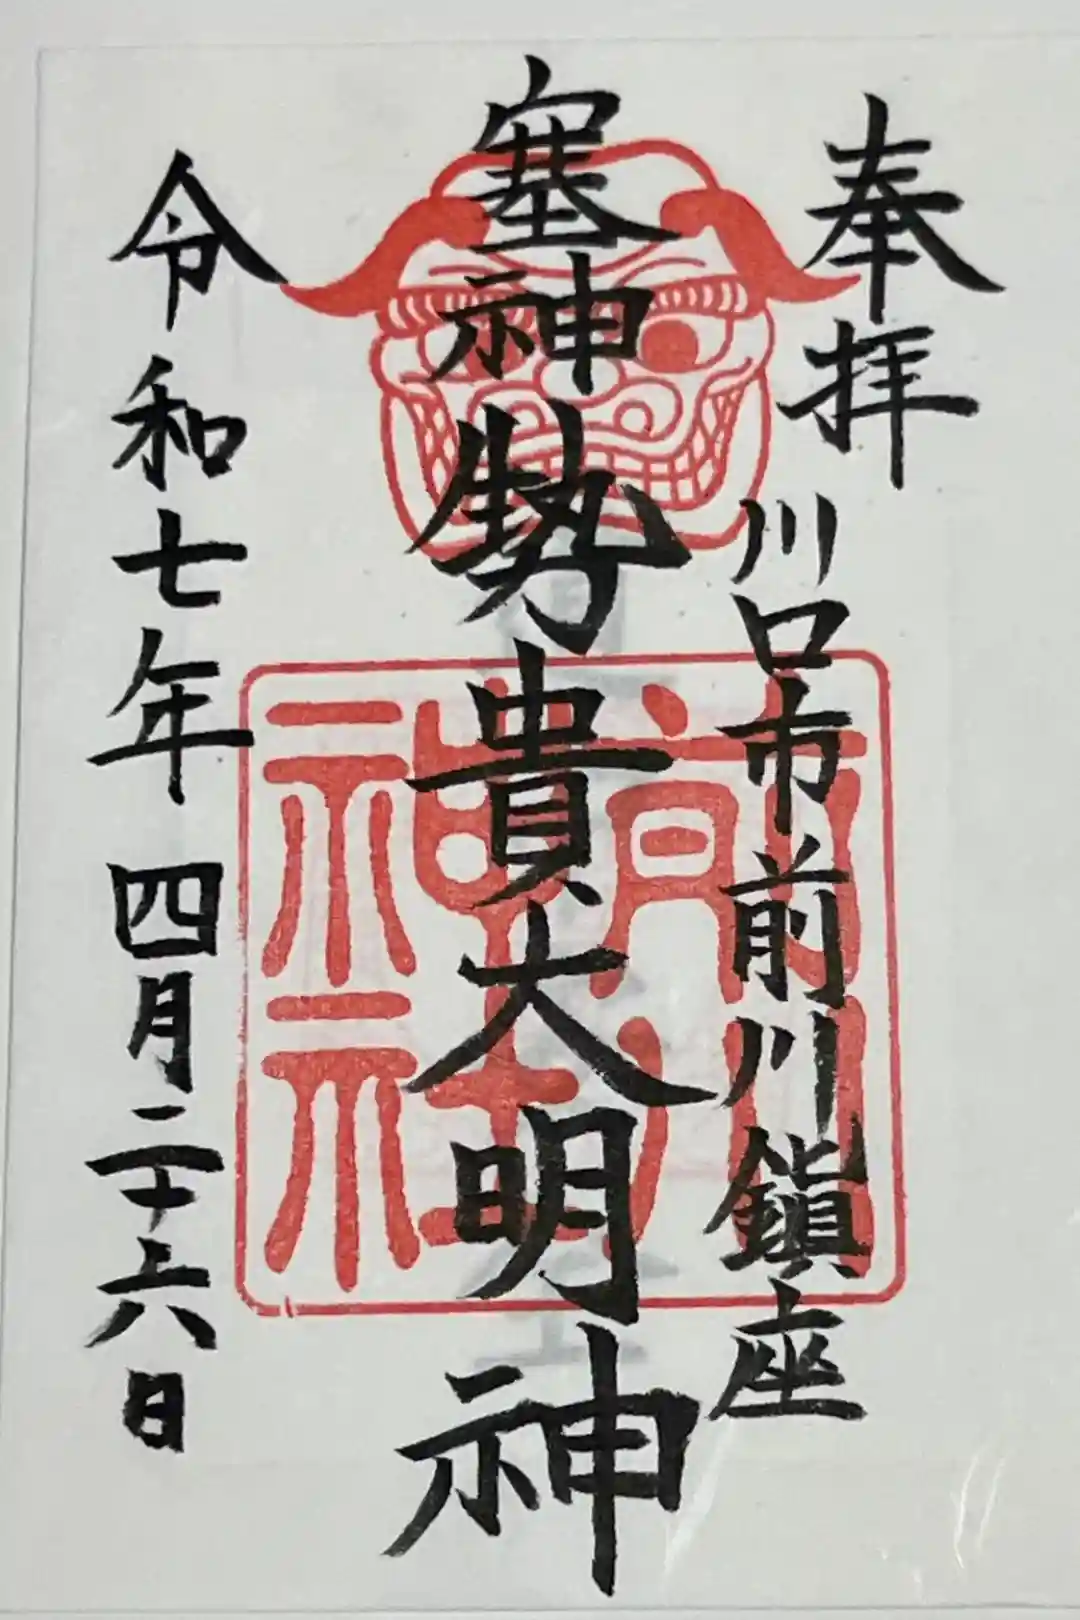 奉拝
川口市前川鎮座
塞神勢貴大明神
前川神社
令和七年四月二十六日